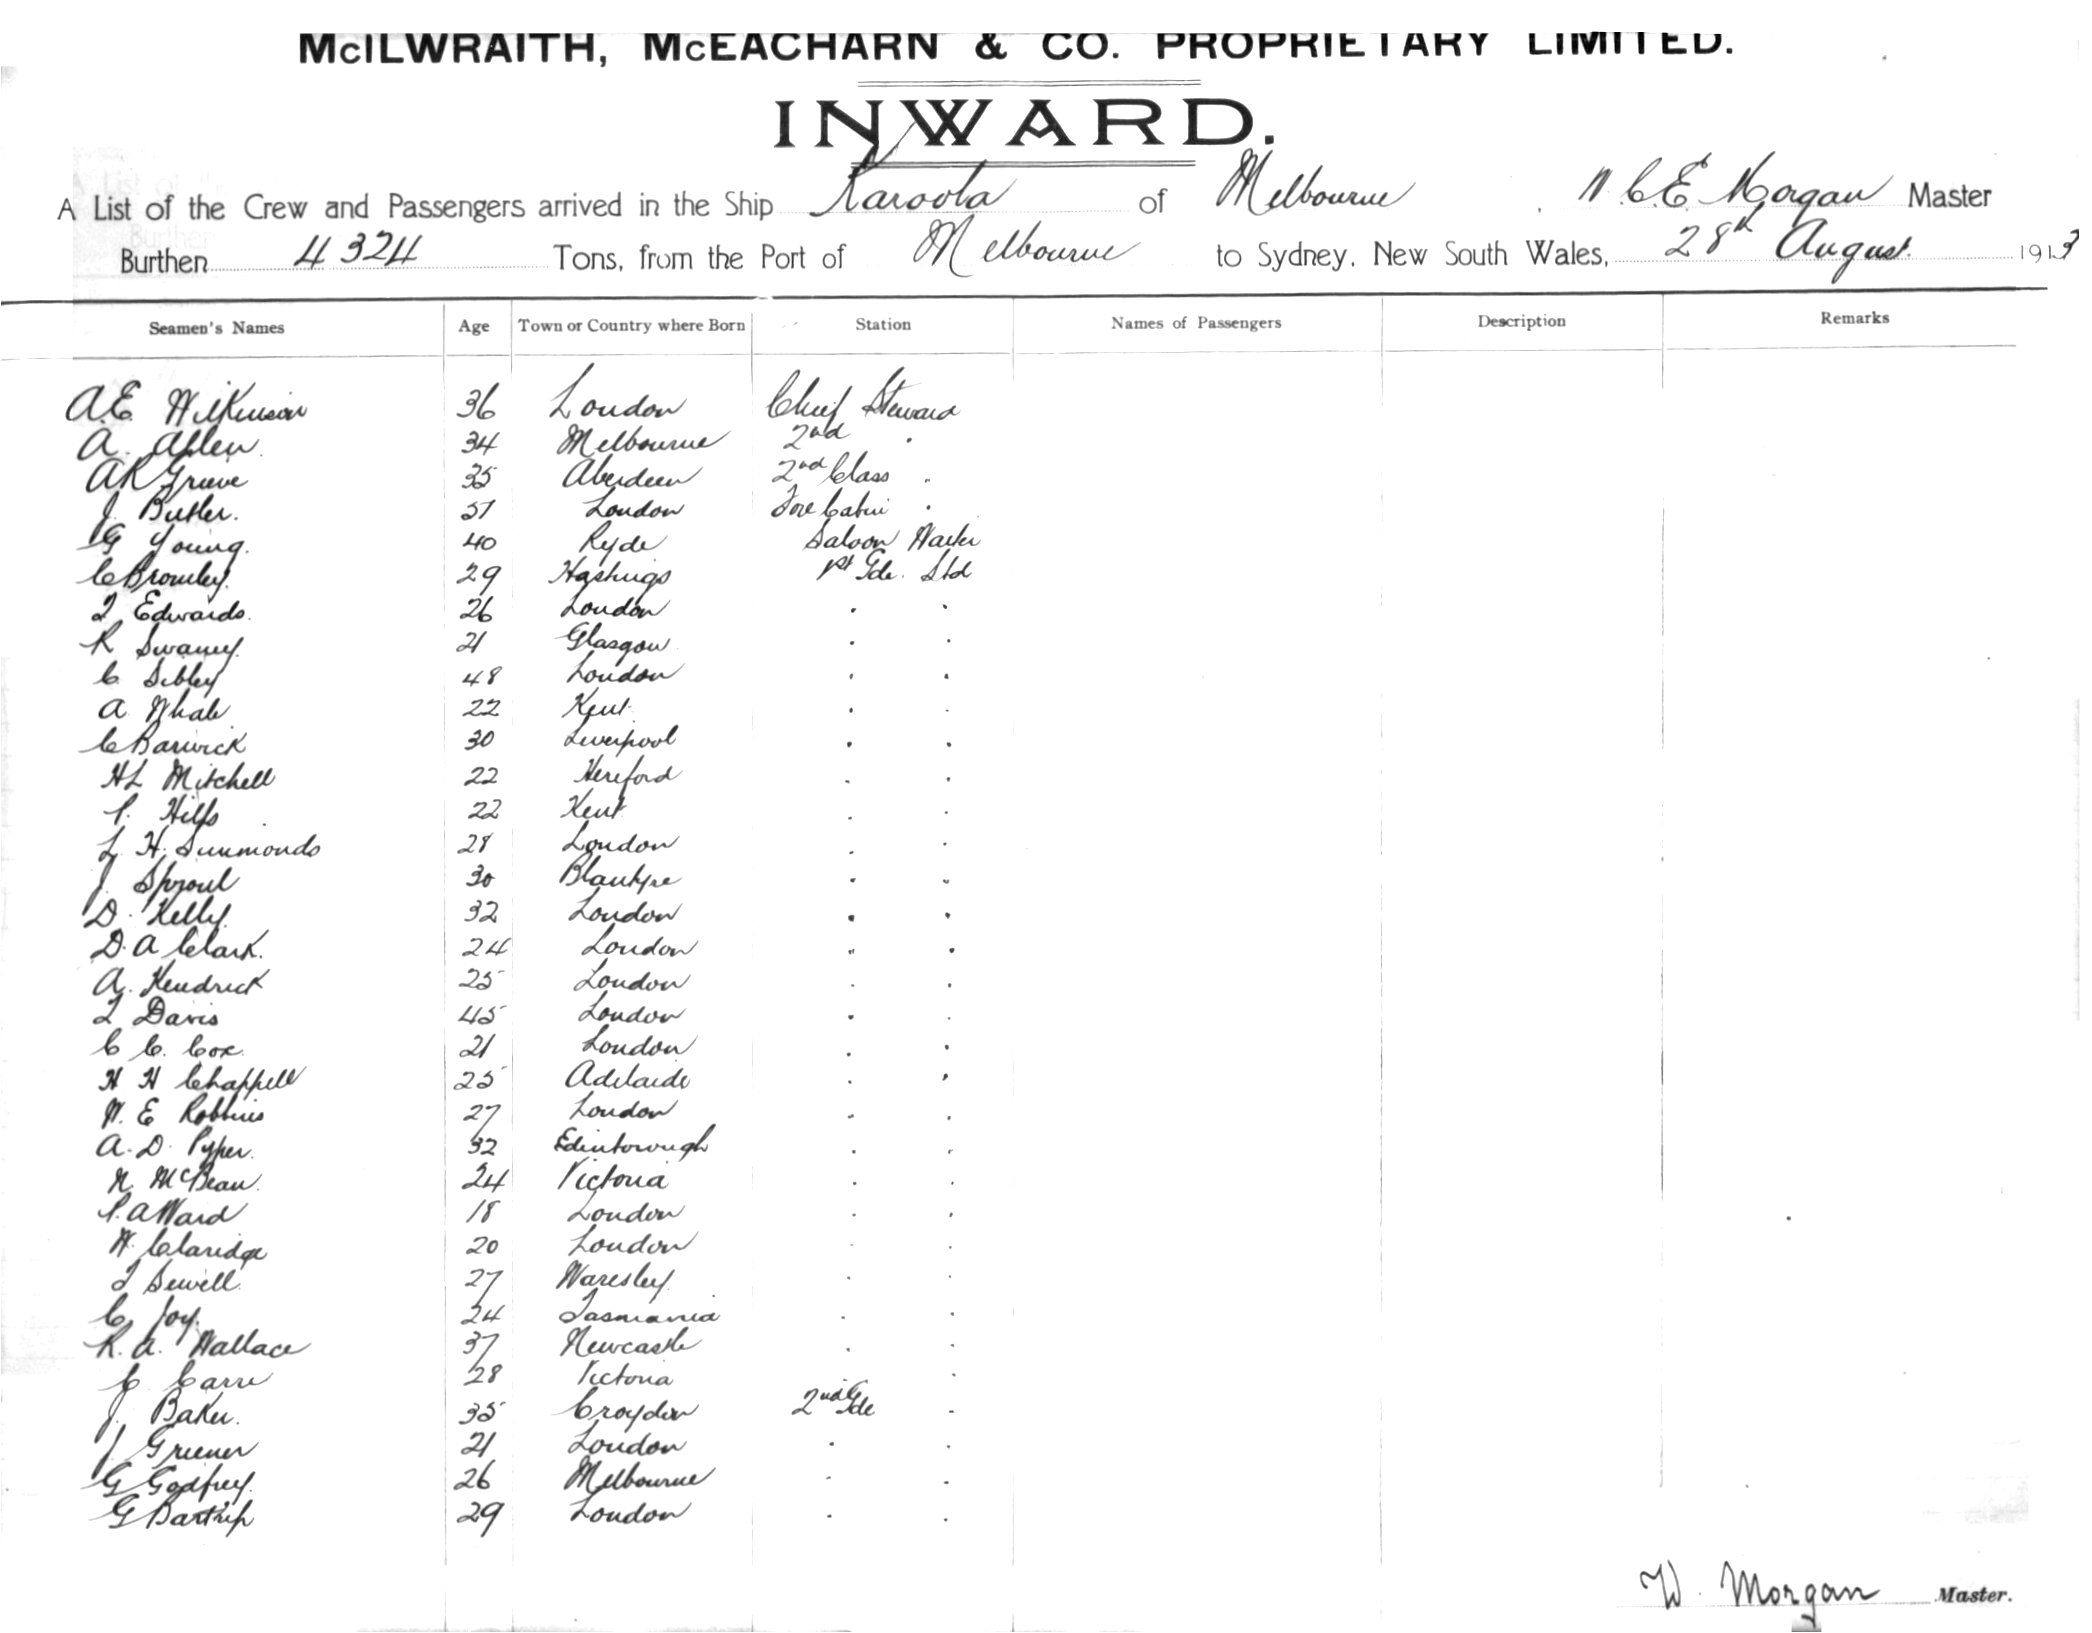 McILWRAITH, McEACHARN & CO. PROPRIETARY LIMITED.
INWARD.
A List of the Crew and Passengers arrived in the Ship Karoola of Melbourne, W. C. E. Morgan Master
Burthen 4324 Tons, from the Port of Melbourne to Sydney, New South Wales, 28th August 1913
Seamen's Names Age Town or Country where Born Station Names of Passengers Description Remarks
A.E. Wilkinson 36 London Chief Steward
A. Allen 34 Melbourne 2nd "
A R Grieve 35 Aberdeen 2nd Class "
J. Butler. London Fore Cabin "
G Young. 40 Ryde Saloon Waiter
C Bromley. 29 Hastings 1st Gde. Std
F Edwards. 26 London " "
R Swaney. 21 Glasgow " "
C Sibley 48 London " "
A Whale 22 Kent " "
C Barwick 30 Liverpool " "
HL Mitchell 22 Hereford " "
P. Hills 22 Kent " "
L. H. Simmonds 28 London " "
J Sproul 30 Blantyre " "
D. Kelly. 32 London " "
D. A Clark. 24 London " "
A. Kendrick 25 London " "
F Davis 45 London " "
C C. Cox. 21 London " "
H H Chappell 25 Adelaide " "
W. E Robbins 27 London " "
A. D. Pyper. 32 Edinborough " "
N. McBean. 24 Victoria " "
P. A Ward 18 London " "
W. Claridge 20 London " "
F Sewell. 27 Waresley. " "
C Joy. 24 Tasmania " "
R. A. Wallace 37 Newcastle " "
C Carre 28 Victoria " "
J. Baker. 35 Croydon 2nd Gde "
J Greener 21 London " "
G Godfrey. 26 Melbourne " "
G Bartrip 29 London " "
W. Morgan Master.